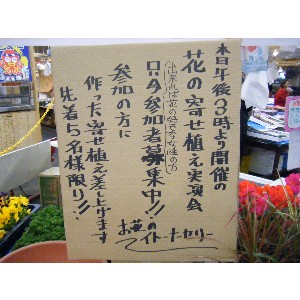 本日午後3時より開催の
花の寄せ植え実演会
出来れば花の好きな女性の方
只今参加者募集中!!
参加の方に
作った寄せ植え差上げます
先着5名様限り!!
お花の
アイトーナーセリー